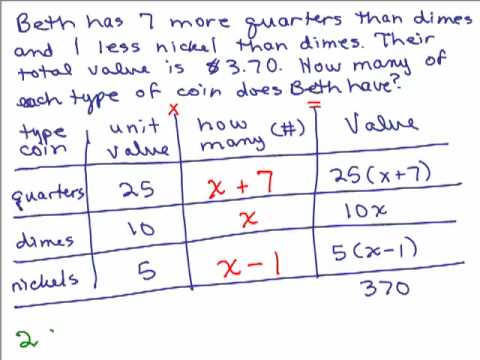 Beth has 7 more quarters than dimes
and 1 less nickel than dimes. Their
total value is $3.70. How many of
each type of coin does Beth have?
x =
type coin unit value how many (#) Value
quarters 25 x + 7 25(x+7)
dimes 10 x 10x
nickels 5 x - 1 5(x-1)
370
2